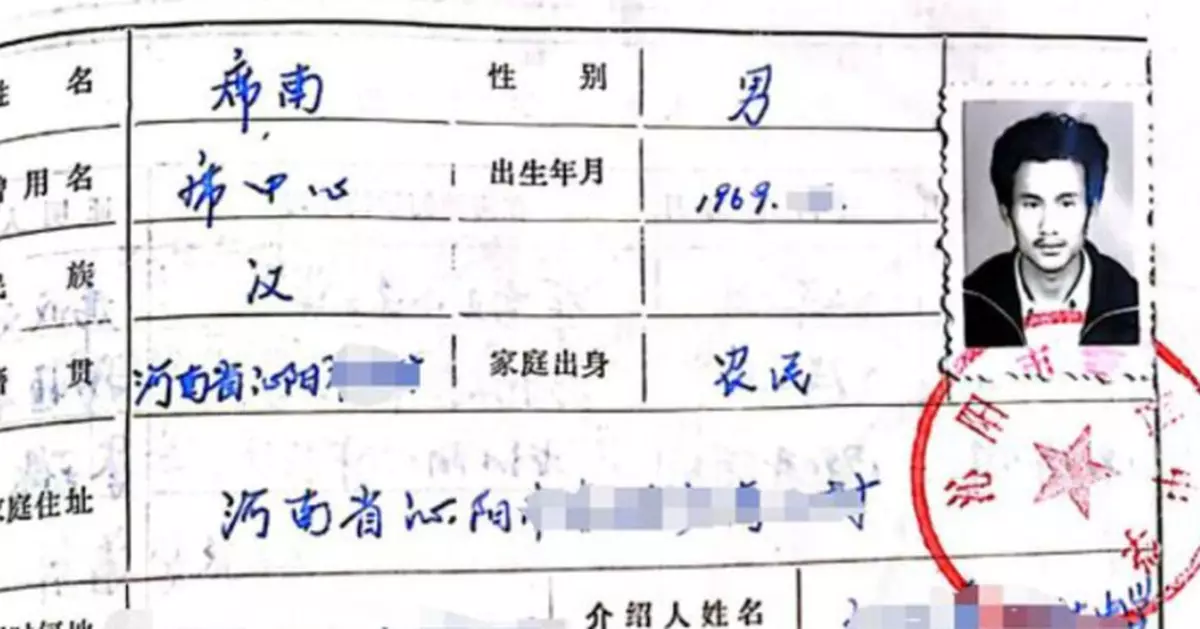 姓名 席南 性别 男
曾用名 席中心 出生年月 1969.
民族 汉
籍贯 河南省沁阳 家庭出身 农民
家庭住址 河南省沁阳 村
介绍人姓名
沁阳市